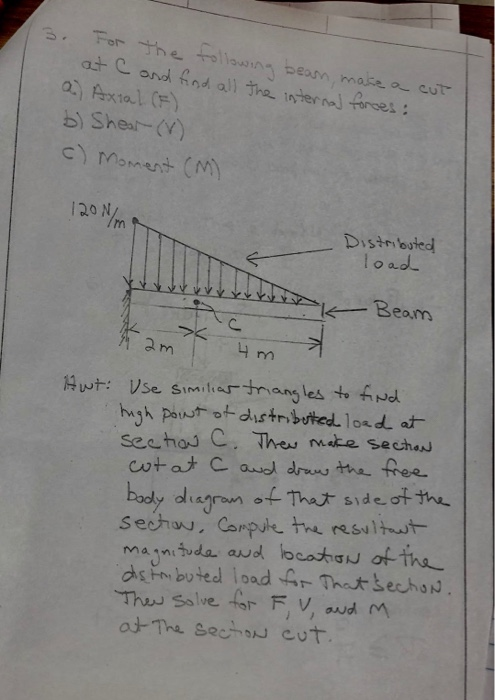 3. For the following beam, make a cut
at C and find all the internal forces:
a.) Axial (F)
b) Shear (V)
c) Moment (M)
120 N/m
Distributed
load
Beam
C
2m
4 m
Hint: Use similiar triangles to find
high point of distributed load at
section C. Then make section
cut at C and draw the free
body diagram of that side of the
section. Compute the resultant
magnitude and location of the
distributed load for that section.
Then solve for F, V, and M
at the section cut.